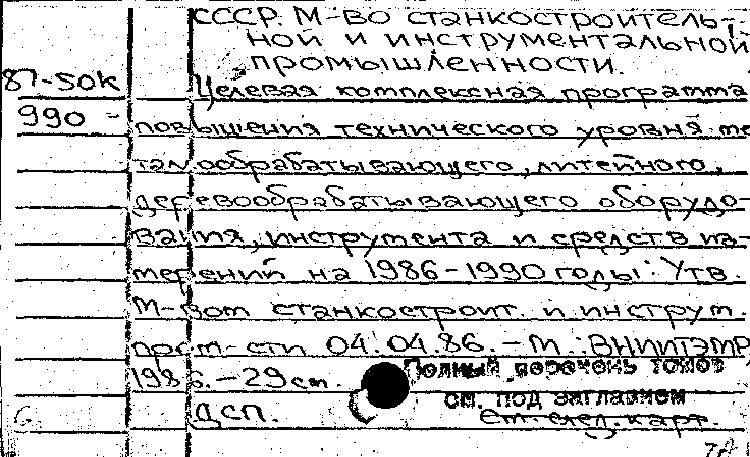 СССР. М-во станкостроитель-
ной и инструментальной
промышленности.
87-50к
Целевая комплексная программа
990-
повышения технического уровня ме-
таллообрабатывающего, литейного,
деревообрабатывающего оборудо-
вания, инструмента и средств из-
мерений на 1986-1990 годы: Утв.
М-вом станкостроит. и инструм.
пром-сти 04.04.86. - М.: ВНИИТЭМР,
1986. - 29 см.
Полный перечень томов
см. под заглавием
ДСП.
См. след. карт.